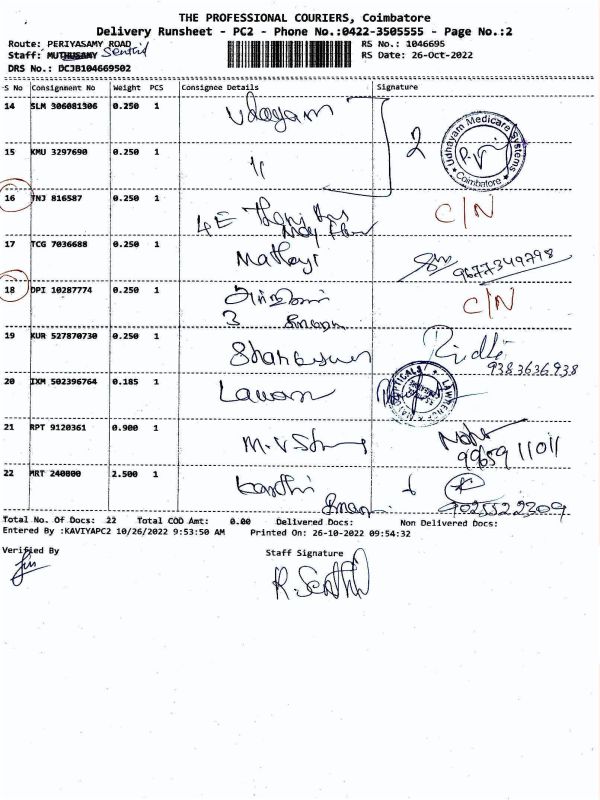 THE PROFESSIONAL COURIERS, Coimbatore
Delivery Runsheet - PC2 - Phone No.:0422-3505555 - Page No.:2
Route: PERIYASAMY ROAD RS No.: 1046695
Staff: MUTHUSAMY Senthil RS Date: 26-Oct-2022
DRS No.: DCJB104669502
S No Consignment No Weight PCS Consignee Details Signature
14 SLM 306081306 0.250 1 Udayam
15 KMU 3297690 0.250 1 11 2 Udhayam Medicare Systems Coimbatore
16 TNJ 816587 0.250 1 4E C/N
17 TCG 7036688 0.250 1 Matheyi 9677349798
18 DPI 10287774 0.250 1 3 C/N
19 KUR 527870730 0.250 1 Ridhi 9383636938
20 IXM 502396764 0.185 1 Lawan
21 RPT 9120361 0.900 1 99659 11011
22 MRT 240800 2.500 1 9025522309
Total No. Of Docs: 22 Total COD Amt: 0.00 Delivered Docs: Non Delivered Docs:
Entered By :KAVIYAPC2 10/26/2022 9:53:50 AM Printed On: 26-10-2022 09:54:32
Verified By Staff Signature
R. Senthil